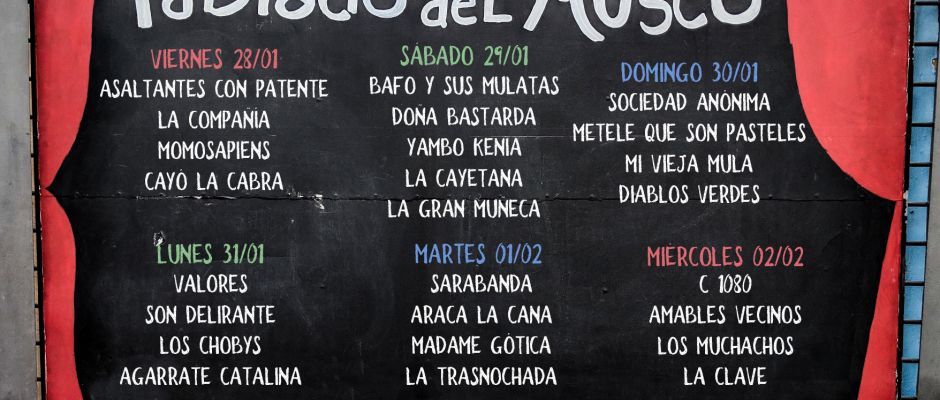 Tablado del Museo
VIERNES 28/01
ASALTANTES CON PATENTE
LA COMPAÑÍA
MOMOSAPIENS
CAYÓ LA CABRA
SÁBADO 29/01
BAFO Y SUS MULATAS
DOÑA BASTARDA
YAMBO KENIA
LA CAYETANA
LA GRAN MUÑECA
DOMINGO 30/01
SOCIEDAD ANÓNIMA
METELE QUE SON PASTELES
MI VIEJA MULA
DIABLOS VERDES
LUNES 31/01
VALORES
SON DELIRANTE
LOS CHOBYS
AGARRATE CATALINA
MARTES 01/02
SARABANDA
ARACA LA CANA
MADAME GÓTICA
LA TRASNOCHADA
MIÉRCOLES 02/02
C 1080
AMABLES VECINOS
LOS MUCHACHOS
LA CLAVE